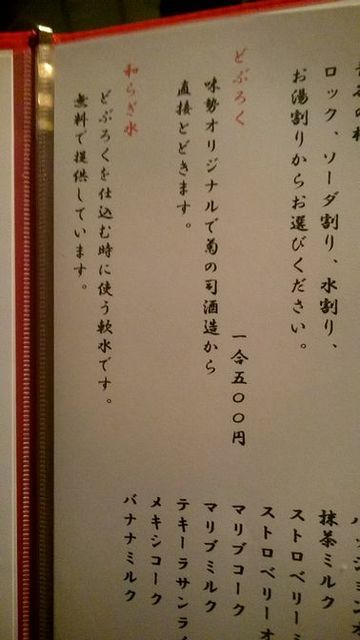 ロック、ソーダ割り、水割り、
お湯割りからお選びください。
どぶろく
一合五〇〇円
味勢オリジナルで菊の司酒造から
直接とどきます。
和らぎ水
どぶろくを仕込む時に使う軟水です。
無料で提供しています。
抹茶ミルク
ストロベリーミ
ストロベリーオ
マリブコーク
マリブミルク
テキーラサンライ
メキシコーク
バナナミルク